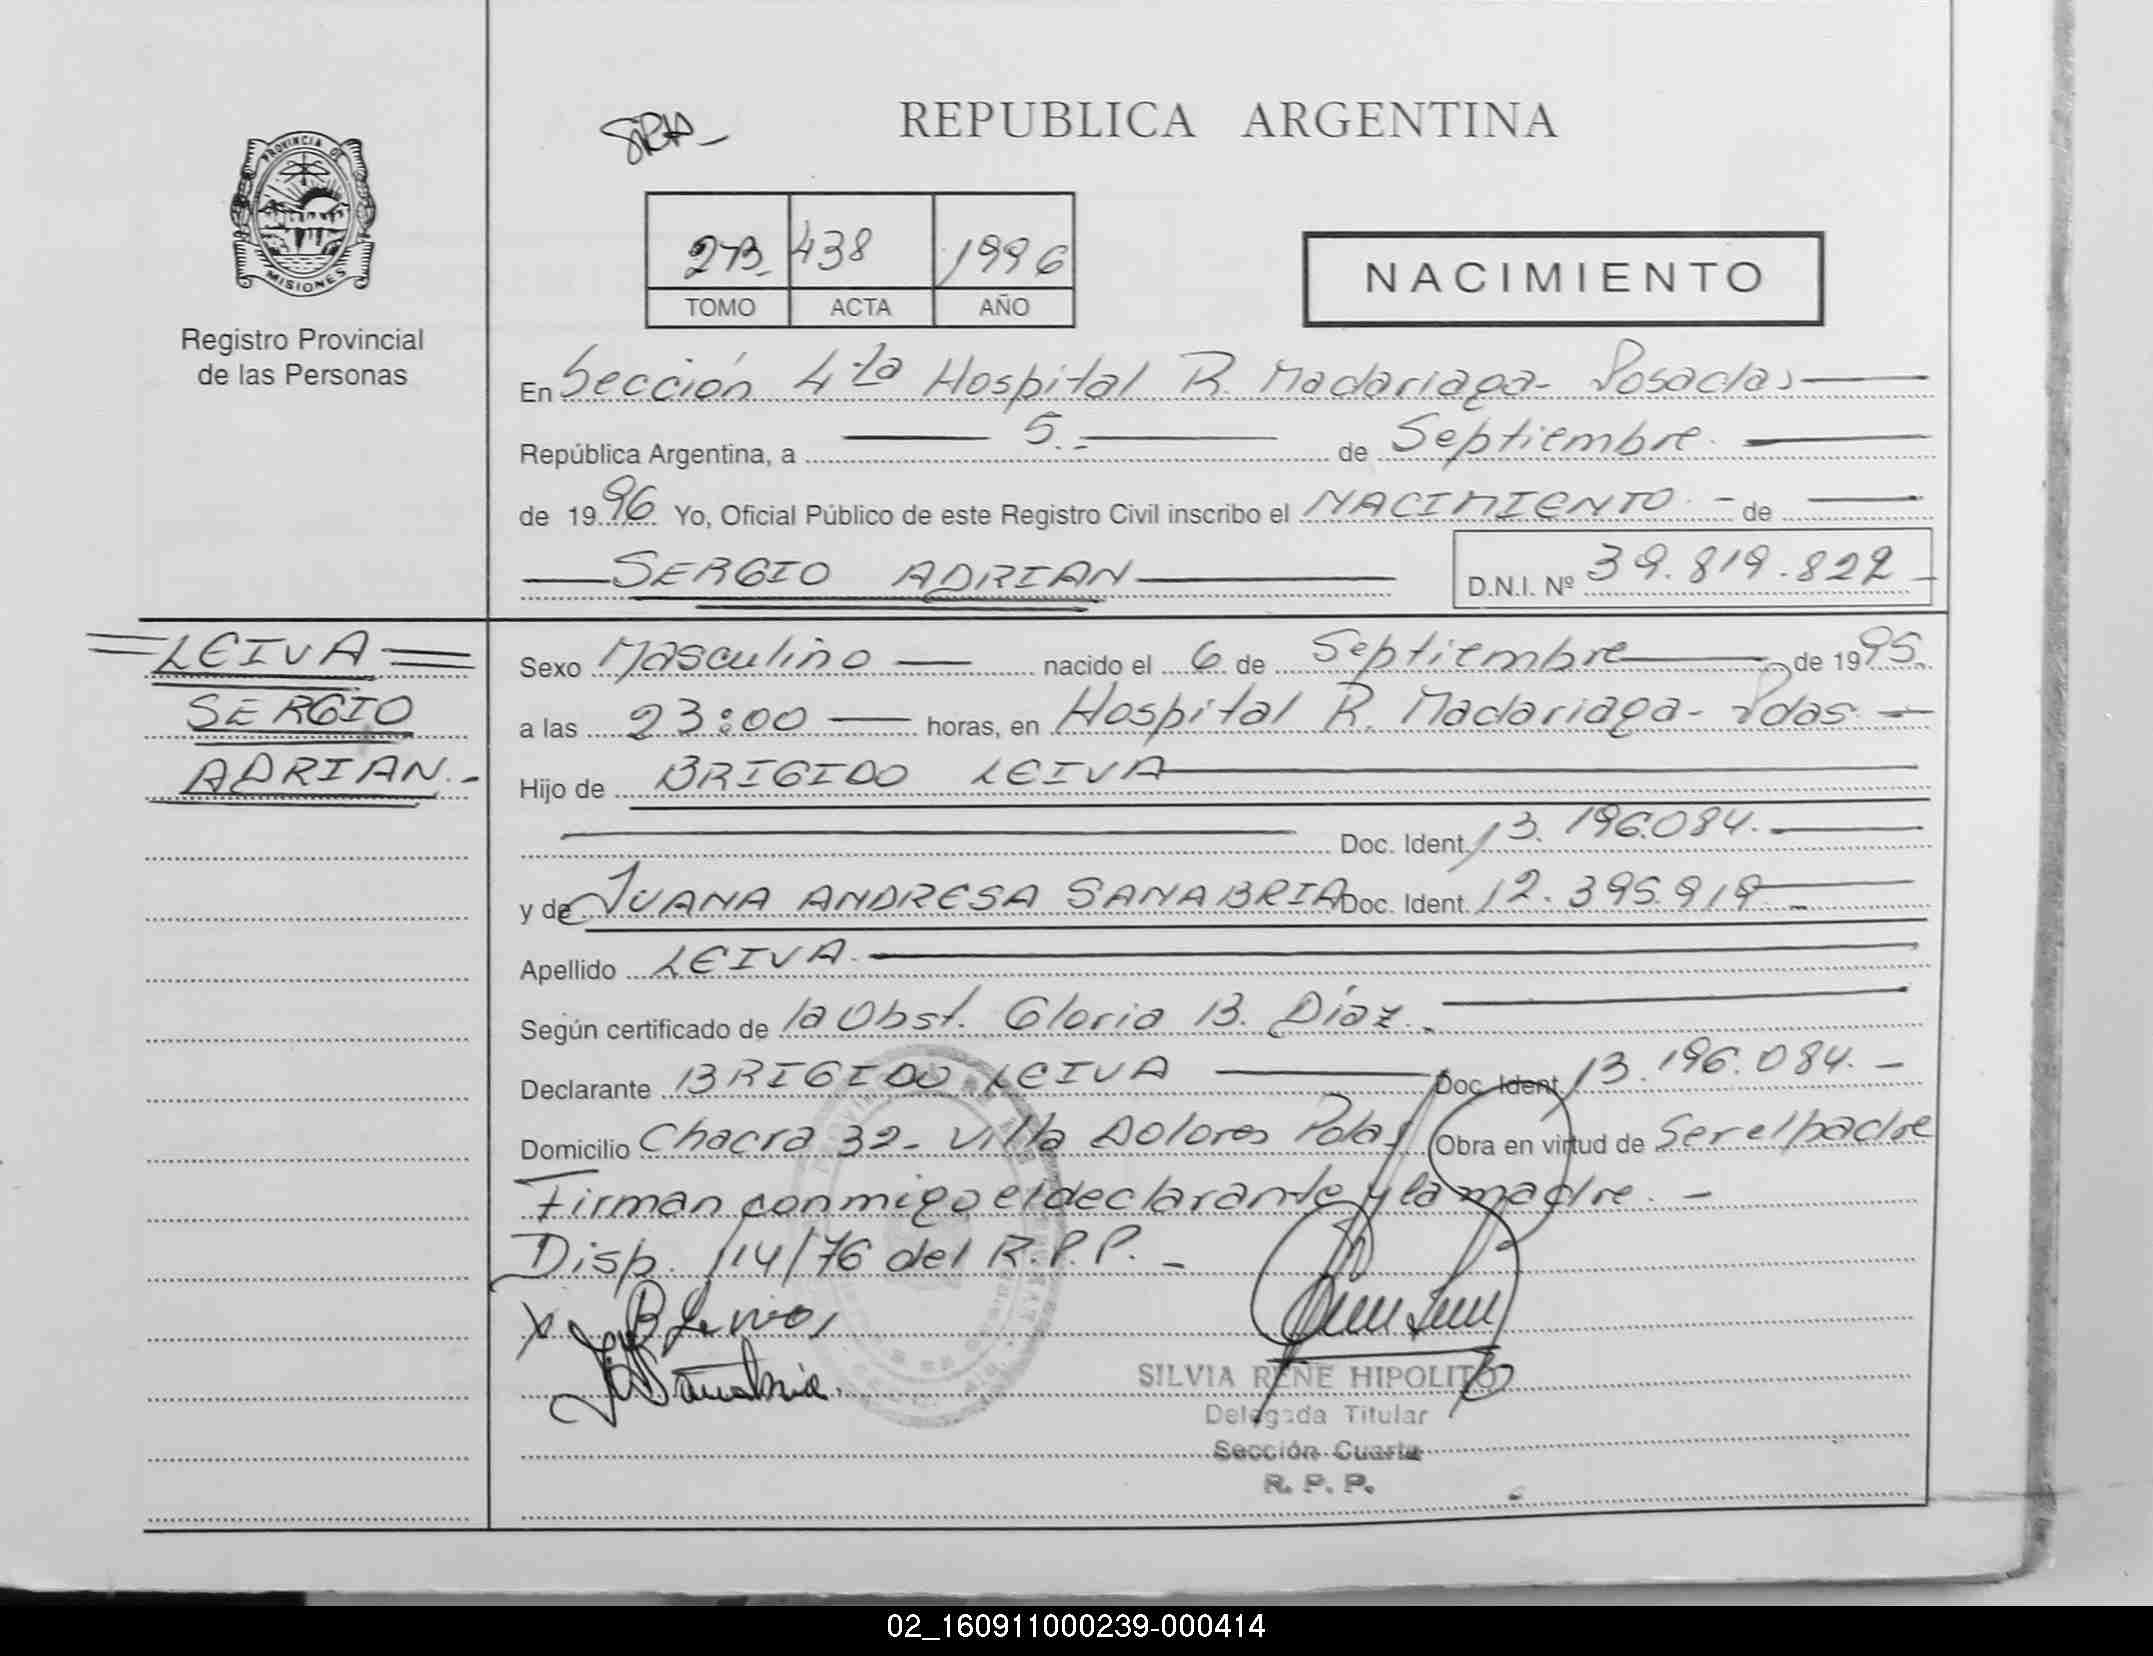 REPUBLICA ARGENTINA
PROVINCIA DE
MISIONES
Registro Provincial
de las Personas
2-B- 438 1996
TOMO ACTA AÑO
NACIMIENTO
En Sección 4ta Hospital R. Madariaga - Posadas
República Argentina, a 5.- de Septiembre.
de 1996 Yo, Oficial Público de este Registro Civil inscribo el NACIMIENTO.- de
SERGIO ADRIAN D.N.I. Nº 39.819.822
LEIVA
SERGIO
ADRIAN.-
Sexo Masculino nacido el 6 de Septiembre de 1995.
a las 23:00 horas, en Hospital R. Madariaga - Pdas.
Hijo de BRIGIDO LEIVA
Doc. Ident. 13.196.084.
y de JUANA ANDRESA SANABRIA Doc. Ident. 12.395.919
Apellido LEIVA.
Según certificado de la Obst. Gloria B. Díaz.
Declarante BRIGIDO LEIVA Doc. Ident. 13.196.084.-
Domicilio Chacra 32- Villa Dolores Pdas Obra en virtud de Ser el padre
Firman conmigo el declarante y la madre.-
Disp. 114/76 del R.P.P.-
X B Leiva
J A Sanabria.
SILVIA RENE HIPOLITO
Delegada Titular
Sección Cuarta
R. P. P.
02_160911000239-000414